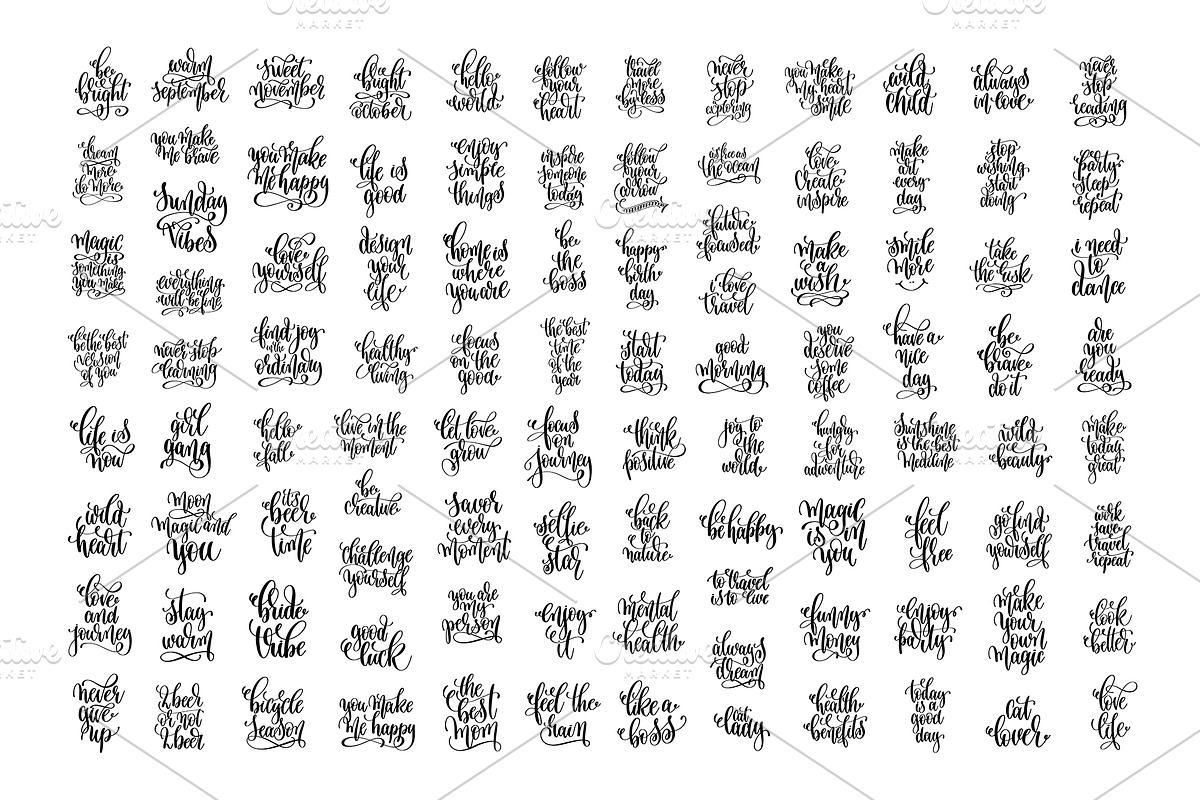 Creative
MARKET
be
bright
warm
september
sweet
november
bright
october
hello
world
follow
your
heart
travel
more
by less
never
stop
exploring
you make
my heart
smile
wild
child
always
in love
never
stop
reading
dream
more
do more
you make
me brave
you make
me happy
life is
good
enjoy
simple
things
inspire
someone
today
follow
your
arrow
as free as
the ocean
love
create
inspire
make
art
every
day
stop
wishing
start
doing
party
sleep
repeat
Sunday
Vibes
magic
is
something
you make
everything
will be fine
love
yourself
design
your
life
home is
where
you are
be
the
boss
happy
birth
day
future
focused
i love
travel
make
a
wish
smile
more
take
the risk
i need
to
dance
be the best
version
of you
never stop
learning
find joy
in the
ordinary
healthy
living
focus
on the
good
the best
time
of the
year
start
today
good
morning
you
deserve
some
coffee
have a
nice
day
be
brave
do it
are
you
ready
life is
now
girl
gang
hello
fall
live in the
moment
let love
grow
focus
on
journey
think
positive
joy to
the
world
hungry
for
adventure
Sunshine
is the best
Medicine
wild
beauty
make
today
great
wild
heart
Moon
Magic and
You
it's
beer
time
be
creative
challenge
yourself
savor
every
moment
selfie
star
back
to
nature
be happy
magic
is in
you
feel
free
go find
yourself
work
save
travel
repeat
love
and
journey
stay
warm
bride
tribe
good
luck
you are
my
person
enjoy
it
mental
health
to travel
is to live
always
dream
funny
money
enjoy
party
make
your
own
magic
look
better
never
give
up
2 beer
or not
2 beer
bicycle
season
you make
me happy
the
best
mom
feel the
rain
like a
boss
cat
lady
health
benefits
today
is a
good
day
cat
lover
love
life